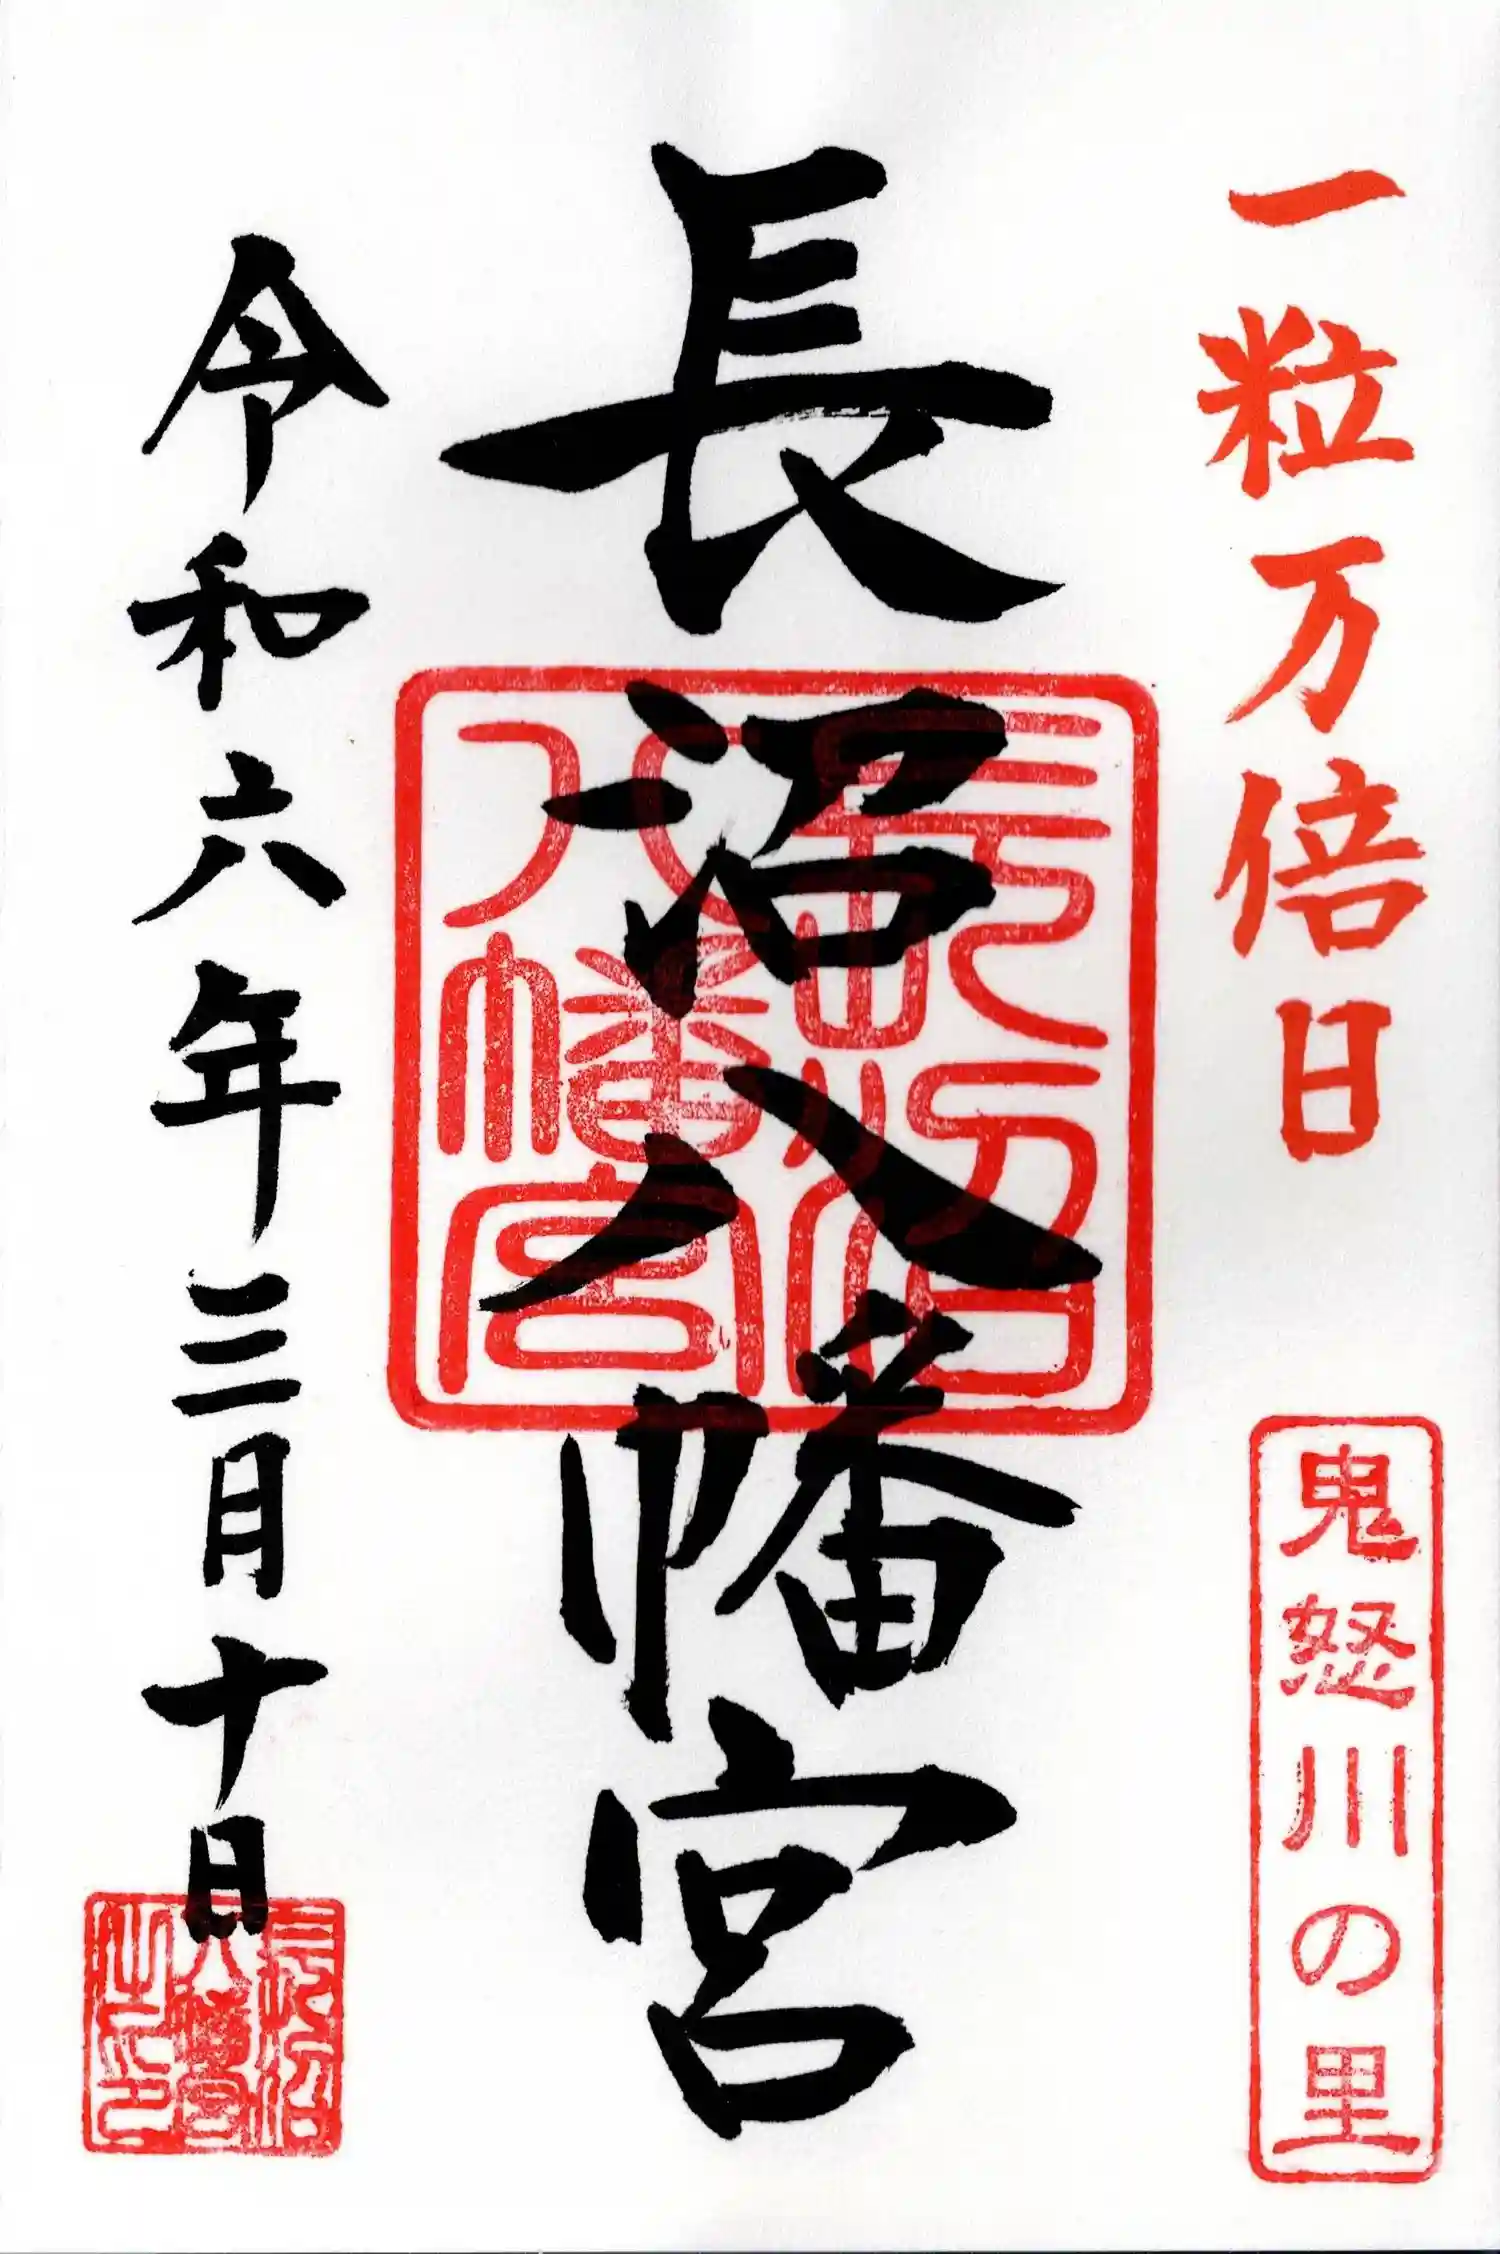 一粒万倍日
鬼怒川の里
長沼八幡宮
長沼
八幡宮
令和六年三月十日
長沼
八幡宮
之印